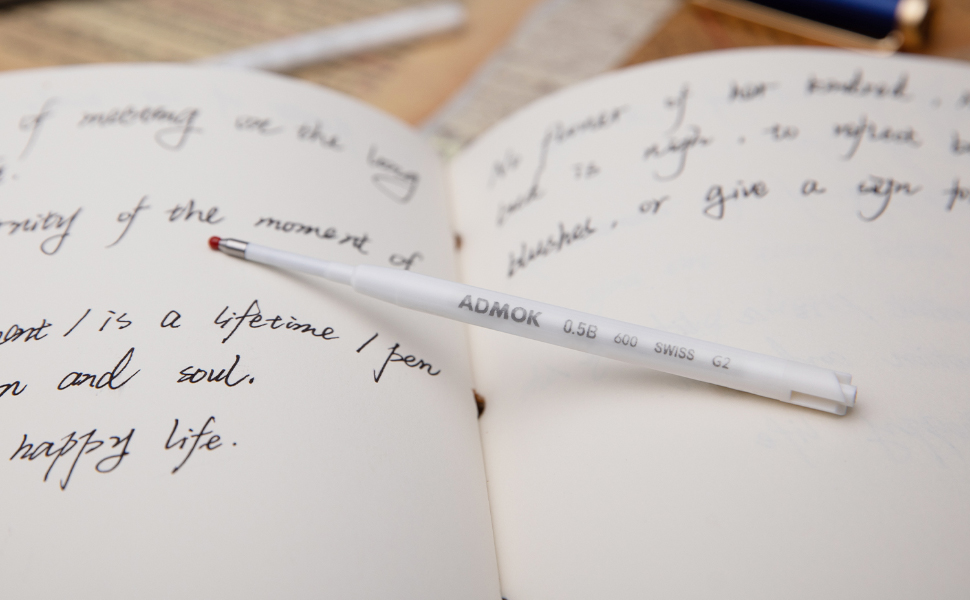 of meeting on the long
rnity of the moment of
ent / is a lifetime / pen
n and soul.
happy life.
No flower of her kindred,
is nigh, to reflect
blushes, or give a sign fo
ADMOK 0.5B 600 SWISS G2